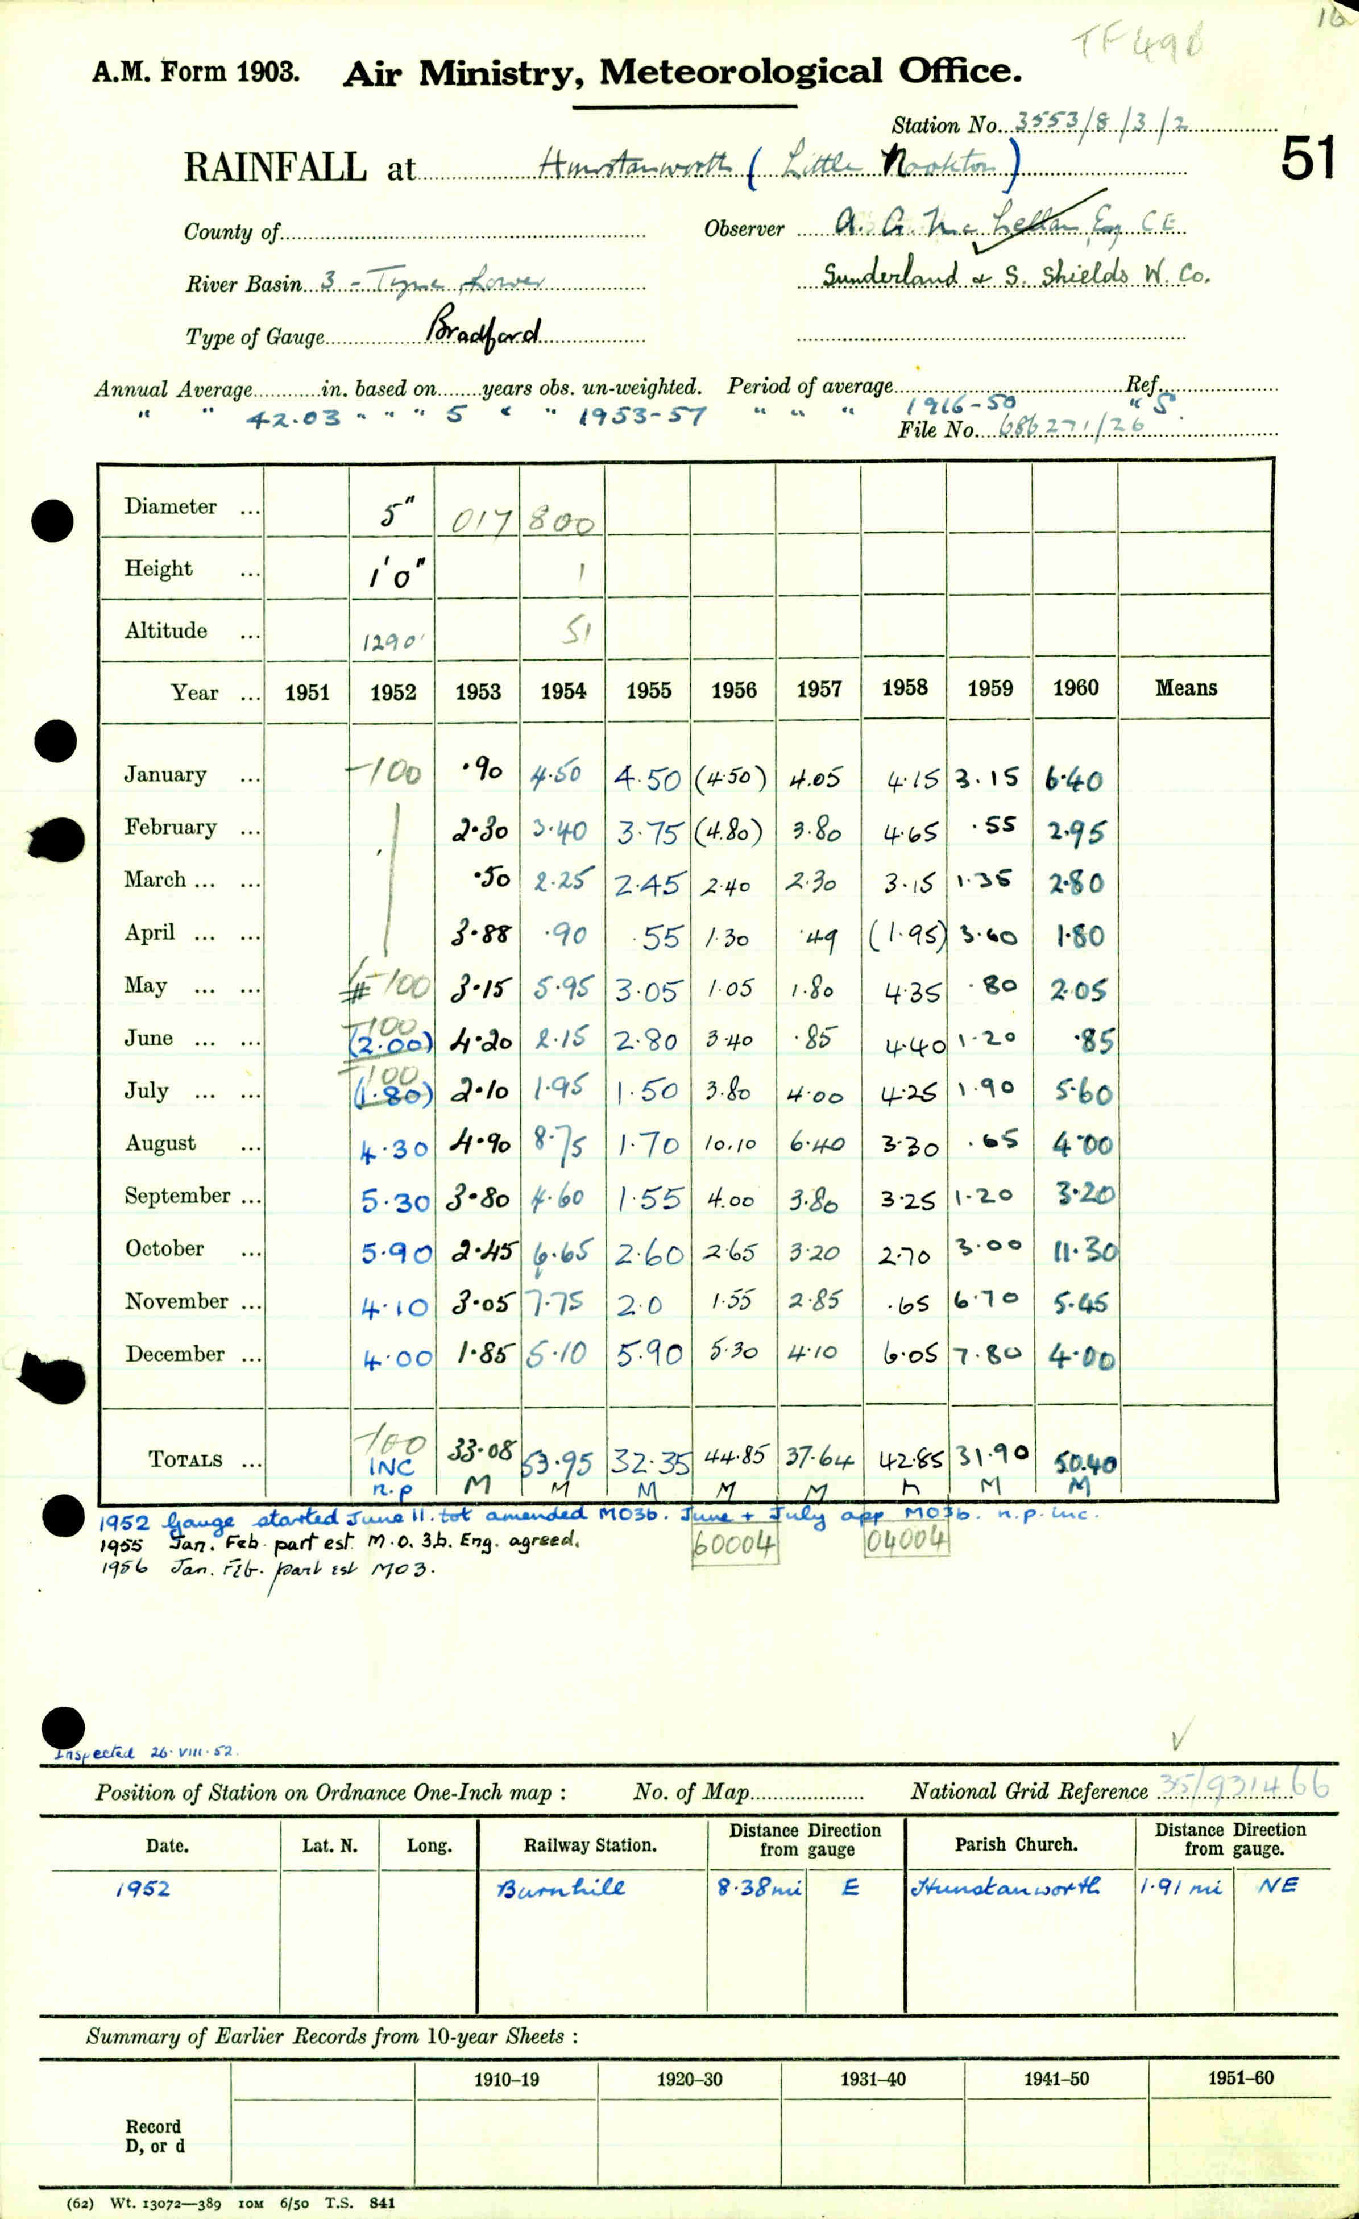 16
TF 49B
A.M. Form 1903. Air Ministry, Meteorological Office.
Station No. 3553/8/3/2
51
RAINFALL at Hunstanworth (Little Nookton)
County of Observer A. G. McLellan, Esq CE
River Basin 3 - Tyne Lower Sunderland & S. Shields W. Co.
Type of Gauge Bradford
Annual Average in. based on years obs. un-weighted. Period of average Ref.
" " 42.03 " " " 5 " " 1953-57 " " " 1916-50 " S
File No. 686271/26
Diameter ... 5" 017 800
Height ... 1'0" 1
Altitude ... 1290' 51
Year ... 1951 1952 1953 1954 1955 1956 1957 1958 1959 1960 Means
January ... -100 .90 4.50 4.50 (4.50) 4.05 4.15 3.15 6.40
February ... 2.30 3.40 3.75 (4.80) 3.80 4.65 .55 2.95
March ... ... .50 2.25 2.45 2.40 2.30 3.15 1.35 2.80
April ... ... 3.88 .90 .55 1.30 .49 (1.95) 3.60 1.80
May ... ... -100 3.15 5.95 3.05 1.05 1.80 4.35 .80 2.05
June ... ... -100 (2.00) 4.20 2.15 2.80 3.40 .85 4.40 1.20 .85
July ... ... -100 (1.80) 2.10 1.95 1.50 3.80 4.00 4.25 1.90 5.60
August ... 4.30 4.90 8.75 1.70 10.10 6.40 3.30 .65 4.00
September ... 5.30 3.80 4.60 1.55 4.00 3.80 3.25 1.20 3.20
October ... 5.90 2.45 6.65 2.60 2.65 3.20 2.70 3.00 11.30
November ... 4.10 3.05 7.75 2.0 1.55 2.85 .65 6.70 5.45
December ... 4.00 1.85 5.10 5.90 5.30 4.10 6.05 7.80 4.00
TOTALS ... -100 INC n.p 33.08 M 53.95 M 32.35 M 44.85 M 37.64 M 42.85 M 31.90 M 50.40 M
1952 Gauge started June 11. tot amended MO3b. June + July app MO3b. n.p. inc.
1955 Jan. Feb part est M.O. 3b. Eng. agreed. 60004 04004
1956 Jan. Feb. part est MO3.
Inspected 26.VIII.52.
Position of Station on Ordnance One-Inch map : No. of Map National Grid Reference 35/931466
Date. Lat. N. Long. Railway Station. Distance Direction from gauge Parish Church. Distance Direction from gauge.
1952 Burnhill 8.38mi E Hunstanworth 1.91 mi NE
Summary of Earlier Records from 10-year Sheets :
1910–19 1920–30 1931–40 1941–50 1951–60
Record
D, or d
(62) Wt. 13072—389 10M 6/50 T.S. 841